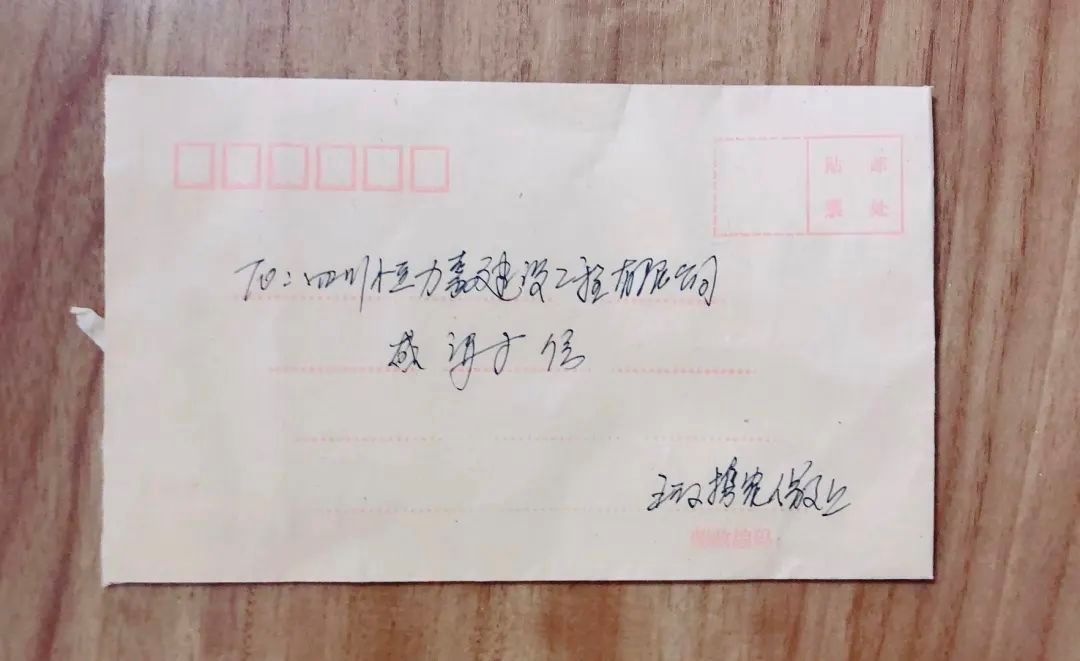 贴 邮
票 处
TO：四川恒力泰建设工程有限公司
感谢信
携家人敬上
邮政编码